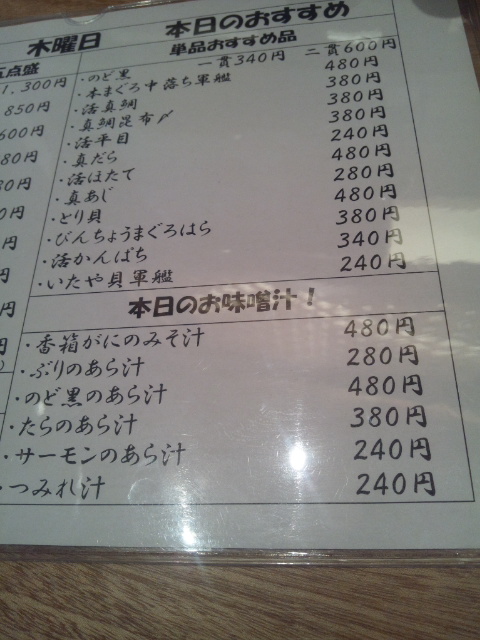 木曜日 本日のおすすめ
五点盛
1,300円
850円
600円
単品おすすめ品
・のど黒 一貫340円 二貫600円
・本まぐろ中落ち軍艦 480円
・活真鯛 380円
・真鯛昆布〆 380円
・活平目 380円
・真だら 240円
・活ほたて 480円
・真あじ 280円
・とり貝 480円
・びんちょうまぐろはら 380円
・活かんぱち 340円
・いたや貝軍艦 240円
本日のお味噌汁！
・香箱がにのみそ汁 480円
・ぶりのあら汁 280円
・のど黒のあら汁 480円
・たらのあら汁 380円
・サーモンのあら汁 240円
・つみれ汁 240円